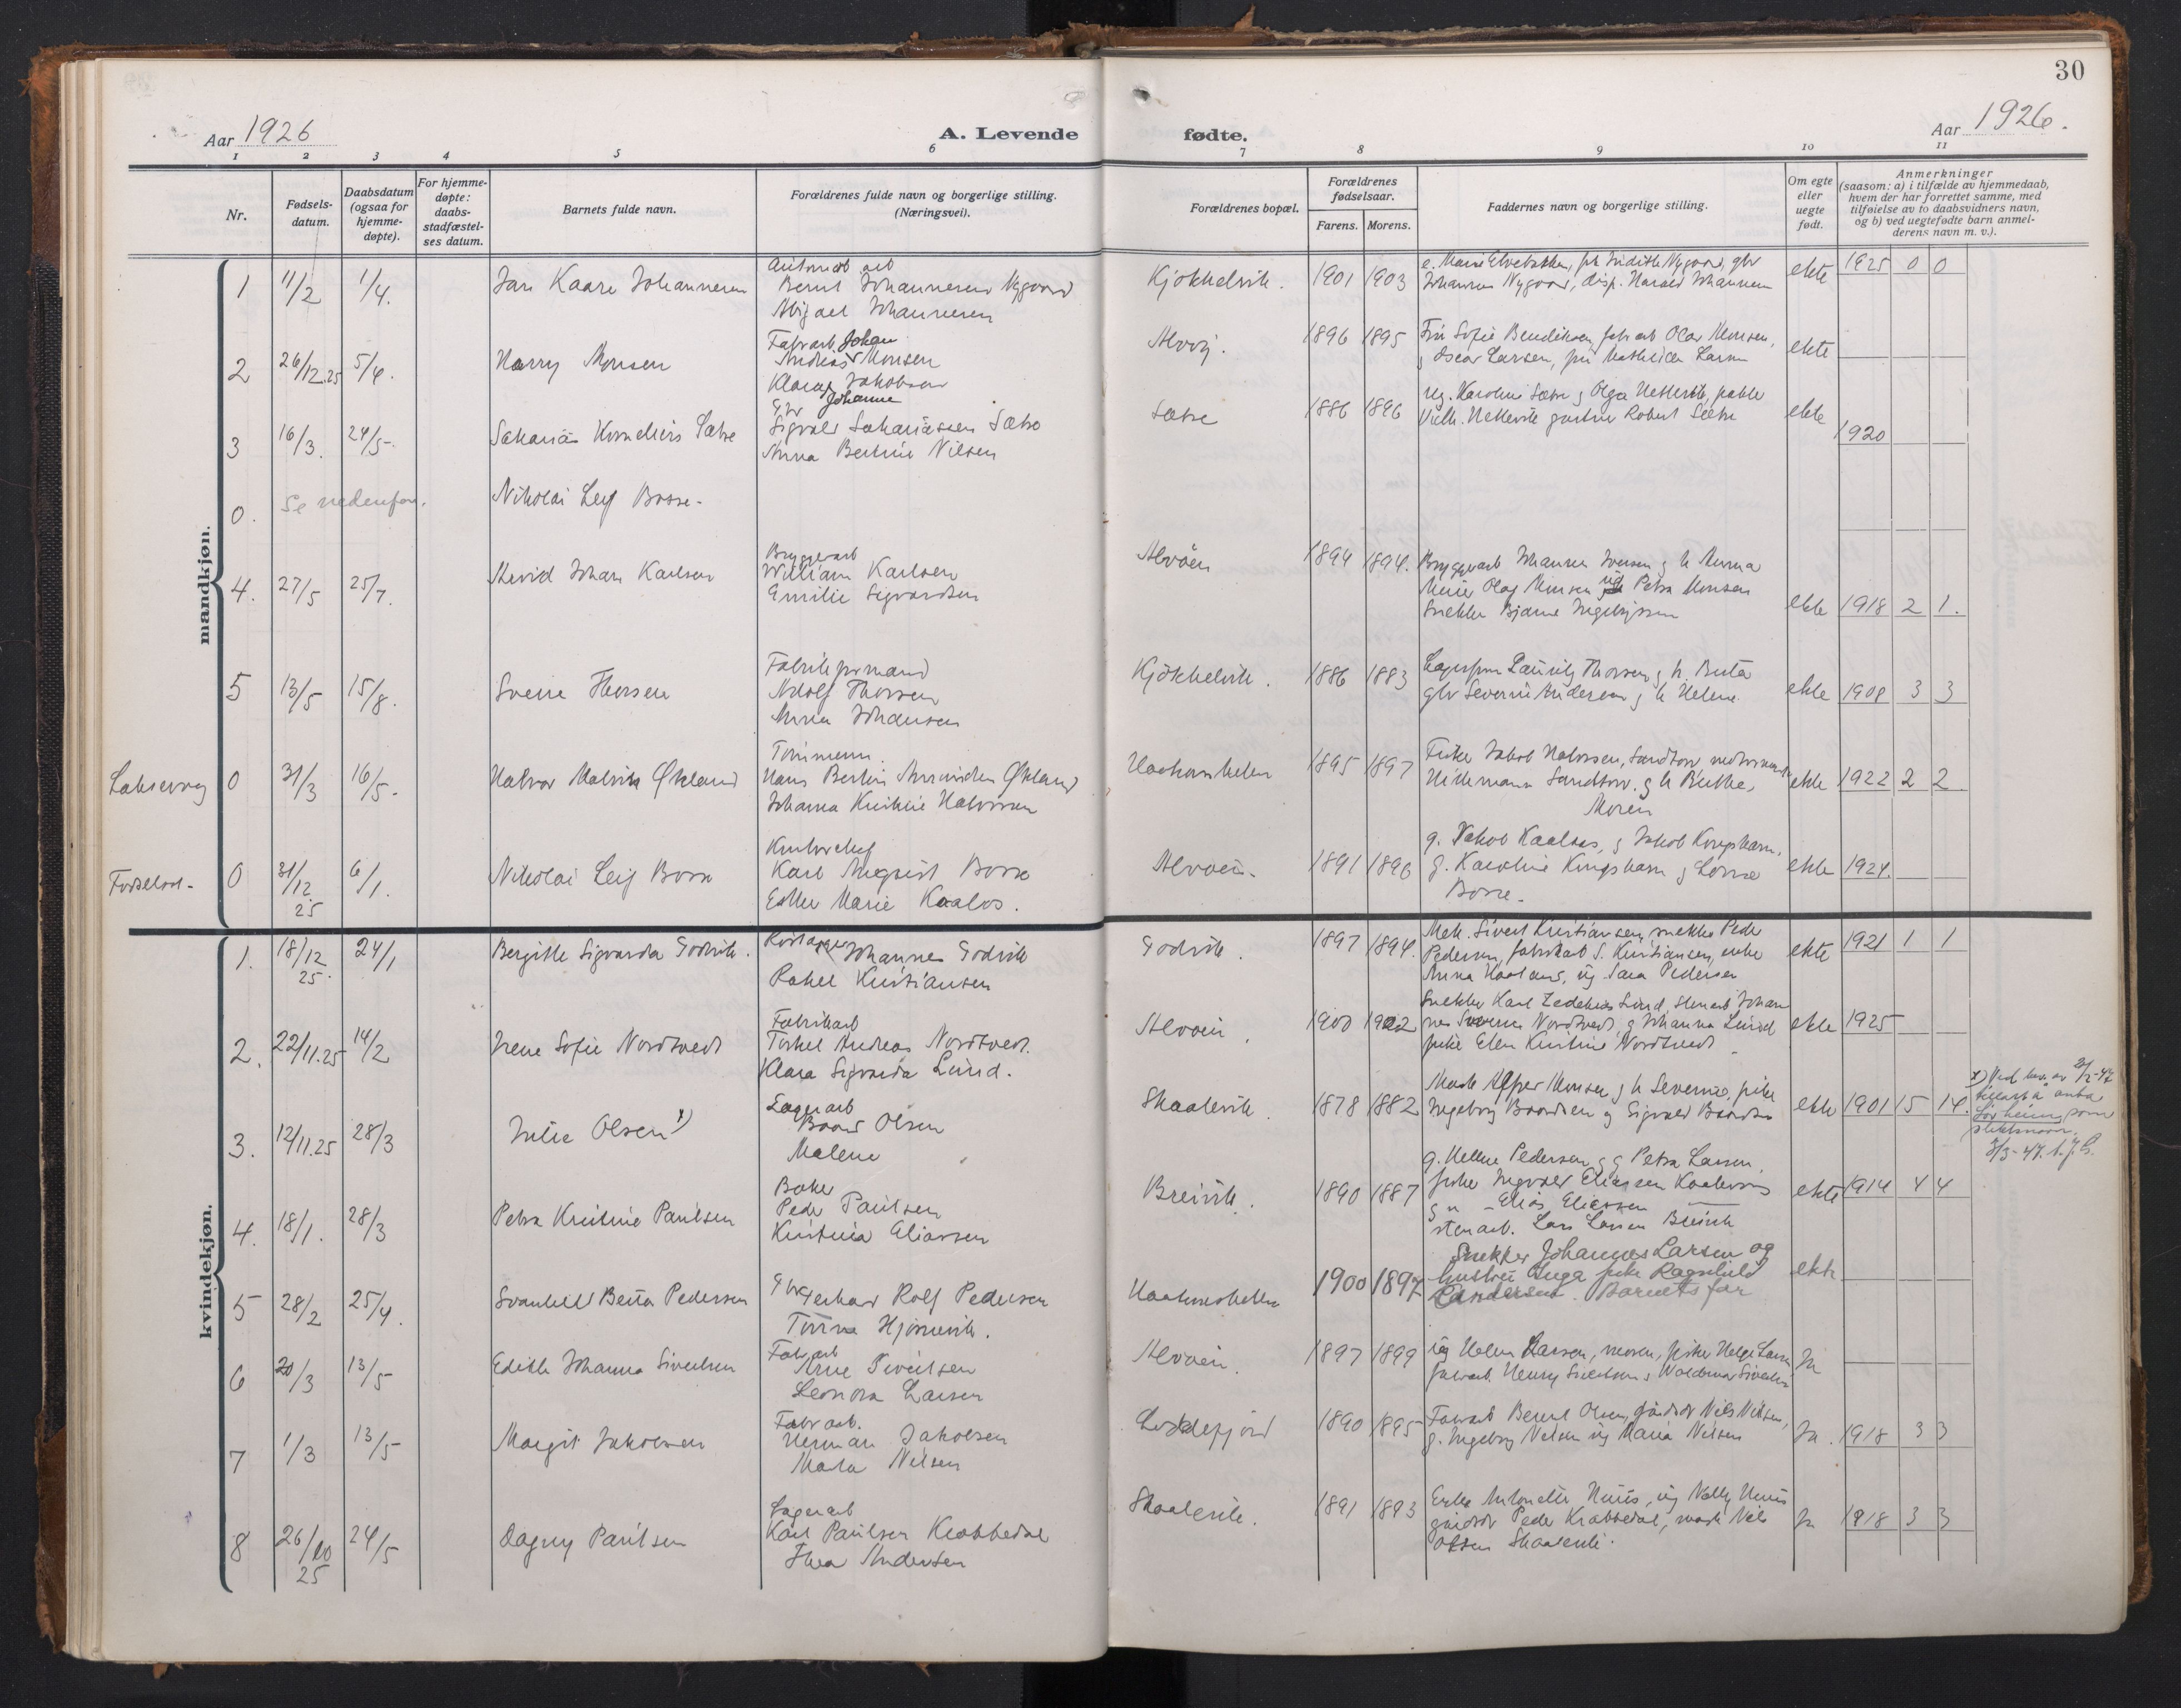 30
Aar 1926
A. Levende
fødte.
Aar 1926.
1 2 3 4 5 6 7 8 9 10 11
Nr.
Fødsels-
datum.
Daabsdatum
(ogsaa for
hjemme-
døpte).
For hjemme-
døpte:
daabs-
stadfæstel-
ses datum.
Barnets fulde navn.
Forældrenes fulde navn og borgerlige stilling.
(Næringsvei).
Forældrenes bopæl.
Forældrenes
fødselsaar.
Farens. Morens.
Faddernes navn og borgerlige stilling.
Om egte
eller
uegte
født.
Anmerkninger
(saasom: a) i tilfælde av hjemmedaab,
hvem der har forrettet samme, med
tilføielse av to daabsvidners navn,
og b) ved uegtefødte barn anmel-
derens navn m. v.).
mandkjøn.
1 11/2 1/4. Jan Kaare Johannesen
Bernt Johannesen Nygaard
Abigael Johannesen
Kjøkkelvik. 1901 1903
Johannes Nygaard, disp. Harald Johannesen
ekte 1925 0 0
2 26/12.25 5/4. Harry Monsen
Fabrarb. Johan
Andreas Monsen
Klara Jakobsen
Alvøy. 1896 1895
Fru Sofie Bendiksen, fabrarb Olav Monsen,
g Oscar Larsen, pik Mathilda Larsen
ekte
3 16/3. 24/5. Sakarias Kornelius Sætre
Gbr Johanne
Sigvald Sakariassen Sætre
Anna Bertine Nilsen
Sætre 1886 1896
ug. Karoline Sætre g Olga
Robert Sætre
ekte 1920
0. Se nedenfor. Nikolai Leif Bosse.
4. 27/5 25/7. Arvid Johan Karlsen
Bryggearb
William Karlsen
Emilie Sigvardsen
Alvøen 1894 1894.
Bryggearb Johannes Iversen g h Anna
Olaf Monsen ug Petra Monsen
Snekker Bjarne Ingebrigtsen
ekte 1918 2 1.
5 13/5 15/8. Sverre Thorsen
Fabrikformand
Adolf Thorsen
Anna Johansen
Kjøkkelvik. 1886 1883
Thorsen g h. Berta
gbr Severin Andersen g h Helene.
ekte 1908 3 3
Laksevaag
0 31/3 16/5. Halvor Malvin Økland
Tømmerm.
Hans Bertin Økland
Johanna Kristine Halvorsen
Haakonshellen 1895 1897
Fisker Jakob Halvorsen, Sandtorv
Sandtorv. g h Berthe,
Moren
ekte 1922 2 2
Fødselsst.
0 31/12 25 6/1. Nikolai Leif Bosse
Kontorchef
Karl August Bosse
Esther Marie Kaalos.
Alvøen. 1891 1896
g. Jakob Kaalaas, g Jakob Kongshavn.
g. Karoline Kongshavn g
Bosse.
ekte 1924.
kvindekjøn.
1. 18/12 25. 24/1 Bergitte Sigvarda Godvik.
Johannes Godvik
Rakel Kristiansen
Godvik. 1897 1894.
Mek. Sivert Kristiansen, snekker Peder
Pedersen, fabrikarb S. Kristiansen, enke
Anna Kaalaas, ug Sara Pedersen
ekte 1921 1 1
2. 22/11.25 14/2 Irene Sofie Nordtvedt
Fabrikarb
Torkel Andreas Nordtvedt.
Klara Sigvarda Lund.
Alvøen. 1900 1902
Snekker Karl Zedekias Lund, stenarb Johan
nes Severin Nordtvedt, g Johanna Lund
pike Elen Kristine Nordtvedt
ekte 1925
3. 12/11.25 28/3 Julie Olsen x)
Lagerarb
Baard Olsen
Malene
Skaalevik. 1878 1882
Monsen g h Severine, pike
Ingeborg Baardsen og Sigvald Baardsen
ekte 1901 15 14.
x) Ved bev. av
tillatt å anta
som
slektsnavn.
4. 18/1. 28/3 Petra Kristine Paulsen
Baker
Peder Paulsen
Kristina Eliassen
Breivik. 1890 1887
g. Helene Pedersen, g g Petra Larsen,
fisker Ingvald Eliassen
g u – Elias Eliassen
stenarb. Lars Larsen Breivik
ekte 1914 4 4
5 28/2 25/4. Svanhild Berta Pedersen
Gerhard Rolf Pedersen
Haakonshellen 1900 1897
Snekker Johannes Larsen og
hustru Inga pike Ragnhild
Andersen. Barnets far
ekte
6 20/3 13/5 Edith Johanna Sivertsen
Fabrarb
Arne Sivertsen
Leonora Larsen
Alvøen. 1897 1899
ug Helen Larsen, moren, fisker Helge Larsen
fabrarb. Henry Sivertsen g Waldemar Sivertsen
Ja
7 1/3 13/5 Margit Jakobsen
Fabrarb.
Herman Jakobsen
Marta Nilsen
Loddefjord 1890 1895
Fabrarb Bernt Olsen, Nils Nilsen,
g. Ingeborg Nilsen ug Maria Nilsen
Ja. 1918 3 3
8 26/10 25 24/5 Dagny Paulsen
Lagerarb
Karl Paulsen Krabbedal
Thea Andersen
Skaalevik. 1891 1893
ug Nelly
Peder Krabbedal, Nils
Olsen Skaalevik.
Ja 1918 3 3